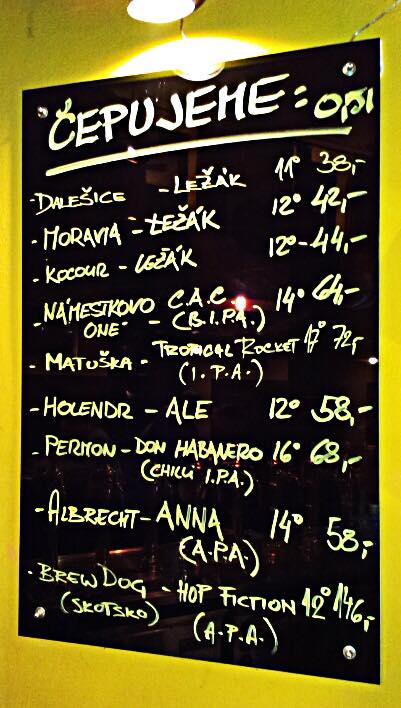 ČEPUJEME: 0,5l
- DALEŠICE - LEŽÁK 11° 38,-
- MORAVIA - LEŽÁK 12° 42,-
- KOCOUR - LEŽÁK 12° - 44,-
- NÁMESTKOVO C.A.C. 14° 64,-
ONE - (B.I.P.A.)
- MATUŠKA - TROPICAL ROCKET 17° 72,-
(I.P.A.)
- HOLENDR - ALE 12° 58,-
- PERMON - DON HABANERO 16° 68,-
(CHILLI I.P.A.)
- ALBRECHT - ANNA 14° 58,-
(A.P.A.)
- BREWDOG - HOP FICTION 12° 146,-
(SKOTSKO) (A.P.A.)